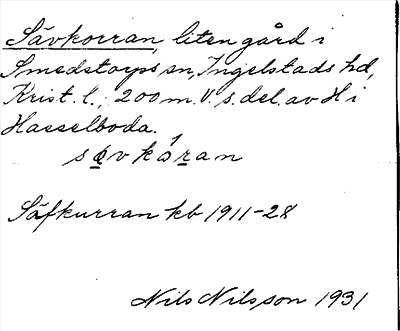 Sävkorran, liten gård i
Smedstorps sn, Ingelstads hd,
Krist. l., 200 m. V. s. del. av H i
Hasselboda.
søvkȯran
Säfkurran kb 1911-28
Nils Nilsson 1931